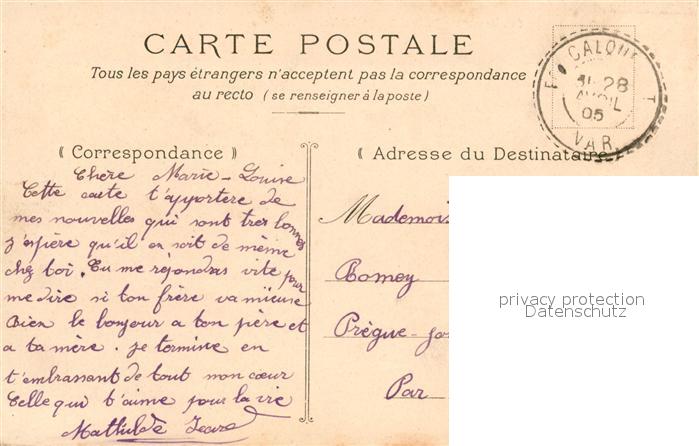 CARTE POSTALE
Tous les pays étrangers n'acceptent pas la correspondance
au recto (se renseigner à la poste)
CALQUI
28
AVRIL
05
VAR
« Correspondance »
Chère Marie-Louise
Cette carte t'apportere de
mes nouvelles qui sont tres bonnes
j'espière qu'il en soit de même
chez toi. Tu me réjondras vite pour
me dire si ton frère va mieuse
Bien le bonjour a ton père et
a ta mère. je termine en
t'embrassant de tout mon cœur
Celle qui t'aime pour la vie
Mathilde
« Adresse du Destinataire
Mademois
Bomey
Prègue-
Par
privacy protection
Datenschutz